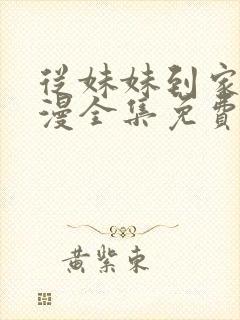 從妹妹到家
漫全集免費
黃紫東